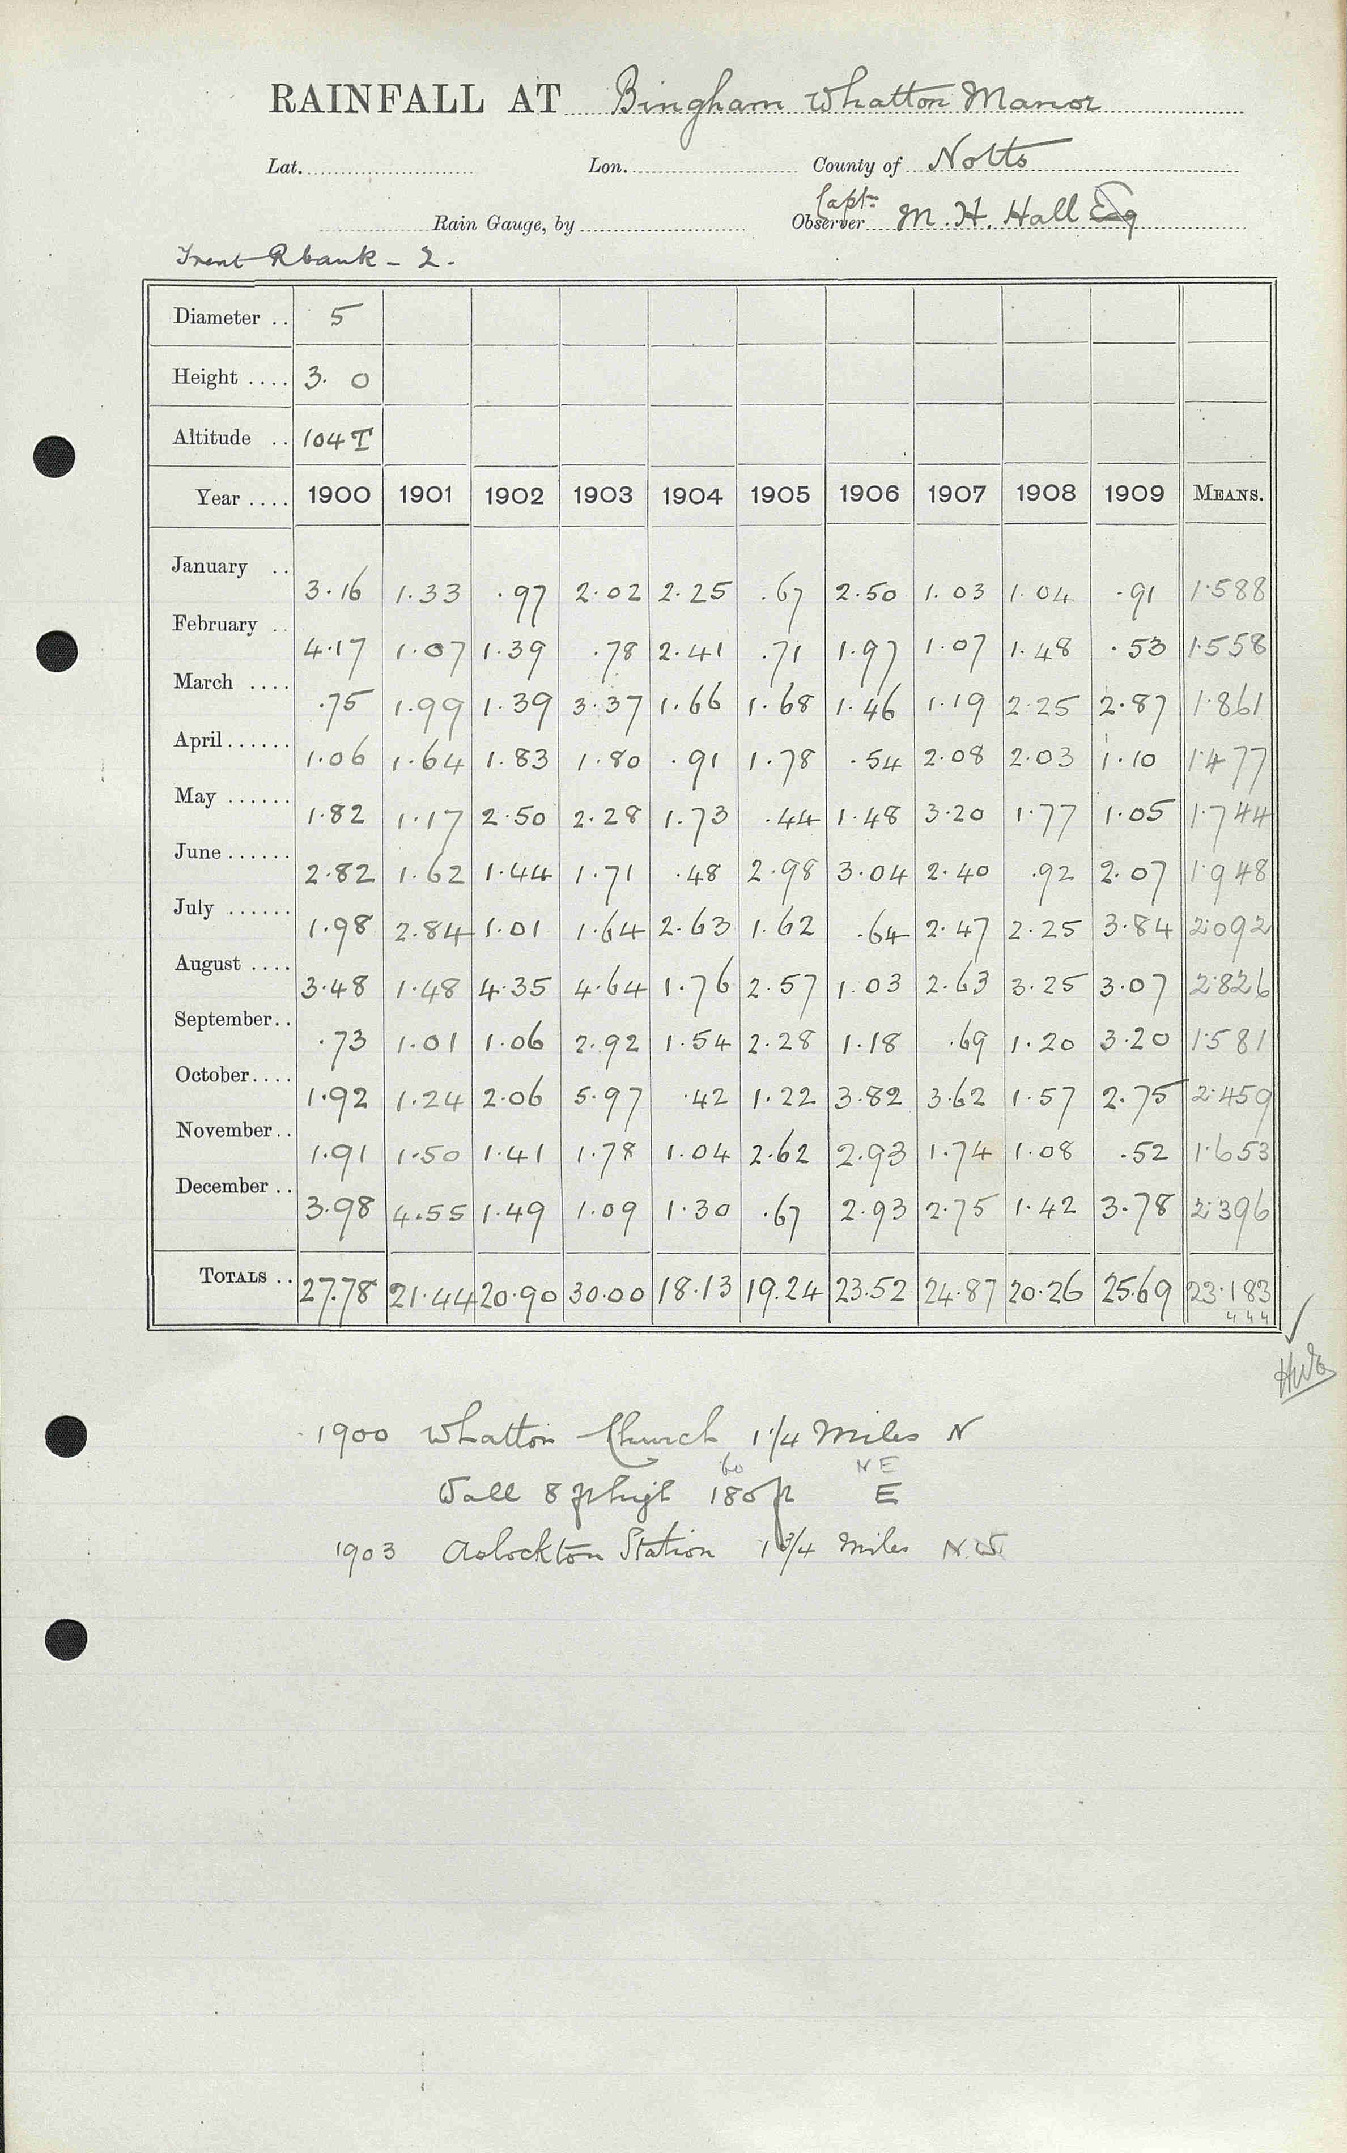 RAINFALL AT Bingham Whatton Manor
Lat. Lon. County of Notts
Rain Gauge, by Observer Capt: M. H. Hall Esq
Trent R bank - 2.
Diameter .. 5
Height .... 3. 0
Altitude .. 104 T
Year .... 1900 1901 1902 1903 1904 1905 1906 1907 1908 1909 MEANS.
January .. 3.16 1.33 .97 2.02 2.25 .67 2.50 1.03 1.04 .91 1.588
February .. 4.17 1.07 1.39 .78 2.41 .71 1.97 1.07 1.48 .53 1.558
March .... .75 1.99 1.39 3.37 1.66 1.68 1.46 1.19 2.25 2.87 1.861
April...... 1.06 1.64 1.83 1.80 .91 1.78 .54 2.08 2.03 1.10 1.477
May ...... 1.82 1.17 2.50 2.28 1.73 .44 1.48 3.20 1.77 1.05 1.744
June...... 2.82 1.62 1.44 1.71 .48 2.98 3.04 2.40 .92 2.07 1.948
July ...... 1.98 2.84 1.01 1.64 2.63 1.62 .64 2.47 2.25 3.84 2.092
August .... 3.48 1.48 4.35 4.64 1.76 2.57 1.03 2.63 3.25 3.07 2.826
September.. .73 1.01 1.06 2.92 1.54 2.28 1.18 .69 1.20 3.20 1.581
October.... 1.92 1.24 2.06 5.97 .42 1.22 3.82 3.62 1.57 2.75 2.459
November.. 1.91 1.50 1.41 1.78 1.04 2.62 2.93 1.74 1.08 .52 1.653
December .. 3.98 4.55 1.49 1.09 1.30 .67 2.93 2.75 1.42 3.78 2.396
TOTALS .. 27.78 21.44 20.90 30.00 18.13 19.24 23.52 24.87 20.26 25.69 23.183
1900 Whatton Church 1 1/4 Miles N
60 NE
Wall 8 ft high 180 ft E
1903 Aslockton Station 1 3/4 Miles N.W.